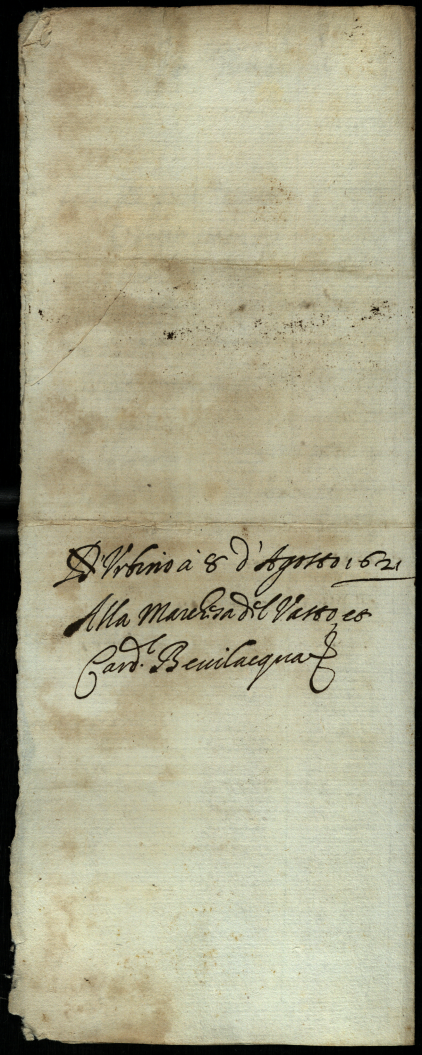 D'Urbino à 8 d'Agosto 1621
Alla Marchesa del Vasto, et
Card.l Bevilacqua